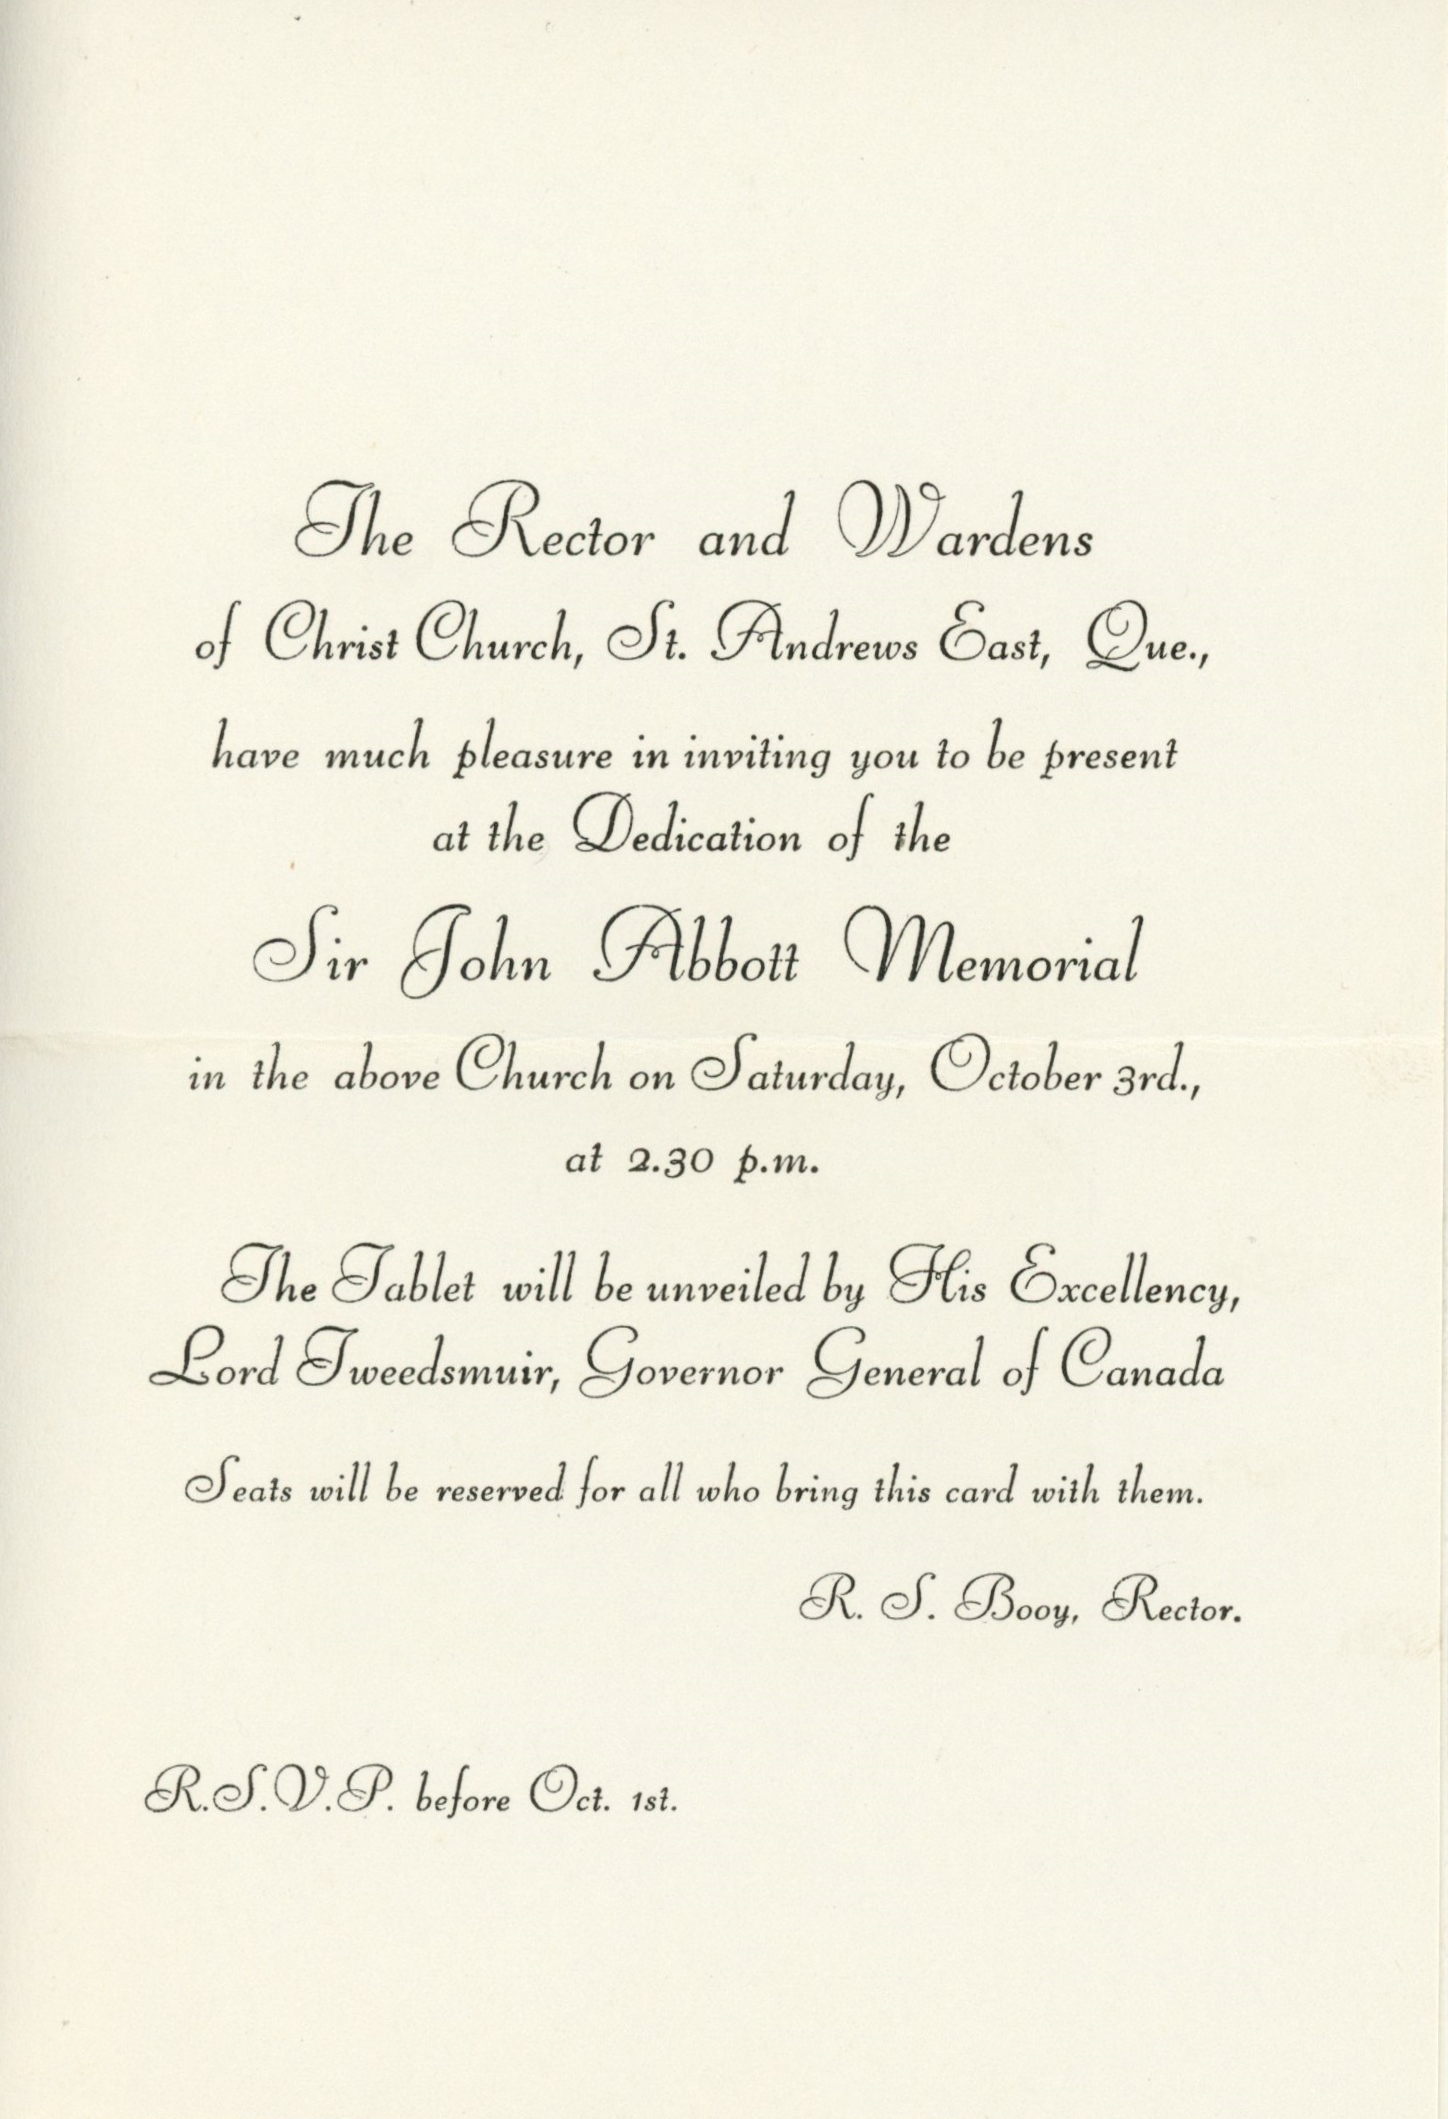 The Rector and Wardens
of Christ Church, St. Andrews East, Que.,
have much pleasure in inviting you to be present
at the Dedication of the
Sir John Abbott Memorial
in the above Church on Saturday, October 3rd.,
at 2.30 p.m.
The Tablet will be unveiled by His Excellency,
Lord Tweedsmuir, Governor General of Canada
Seats will be reserved for all who bring this card with them.
R. S. Booy, Rector.
R.S.V.P. before Oct. 1st.